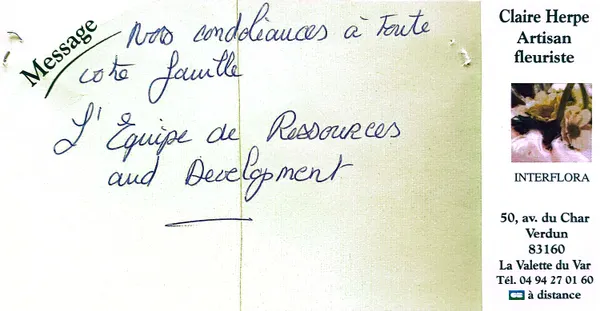 Message
Nos condoliances à toute
votre famille
L'Équipe de Ressources
and Development
Claire Herpe
Artisan
fleuriste
INTERFLORA
50, av. du Char
Verdun
83160
La Valette du Var
Tél. 04 94 27 01 60
à distance